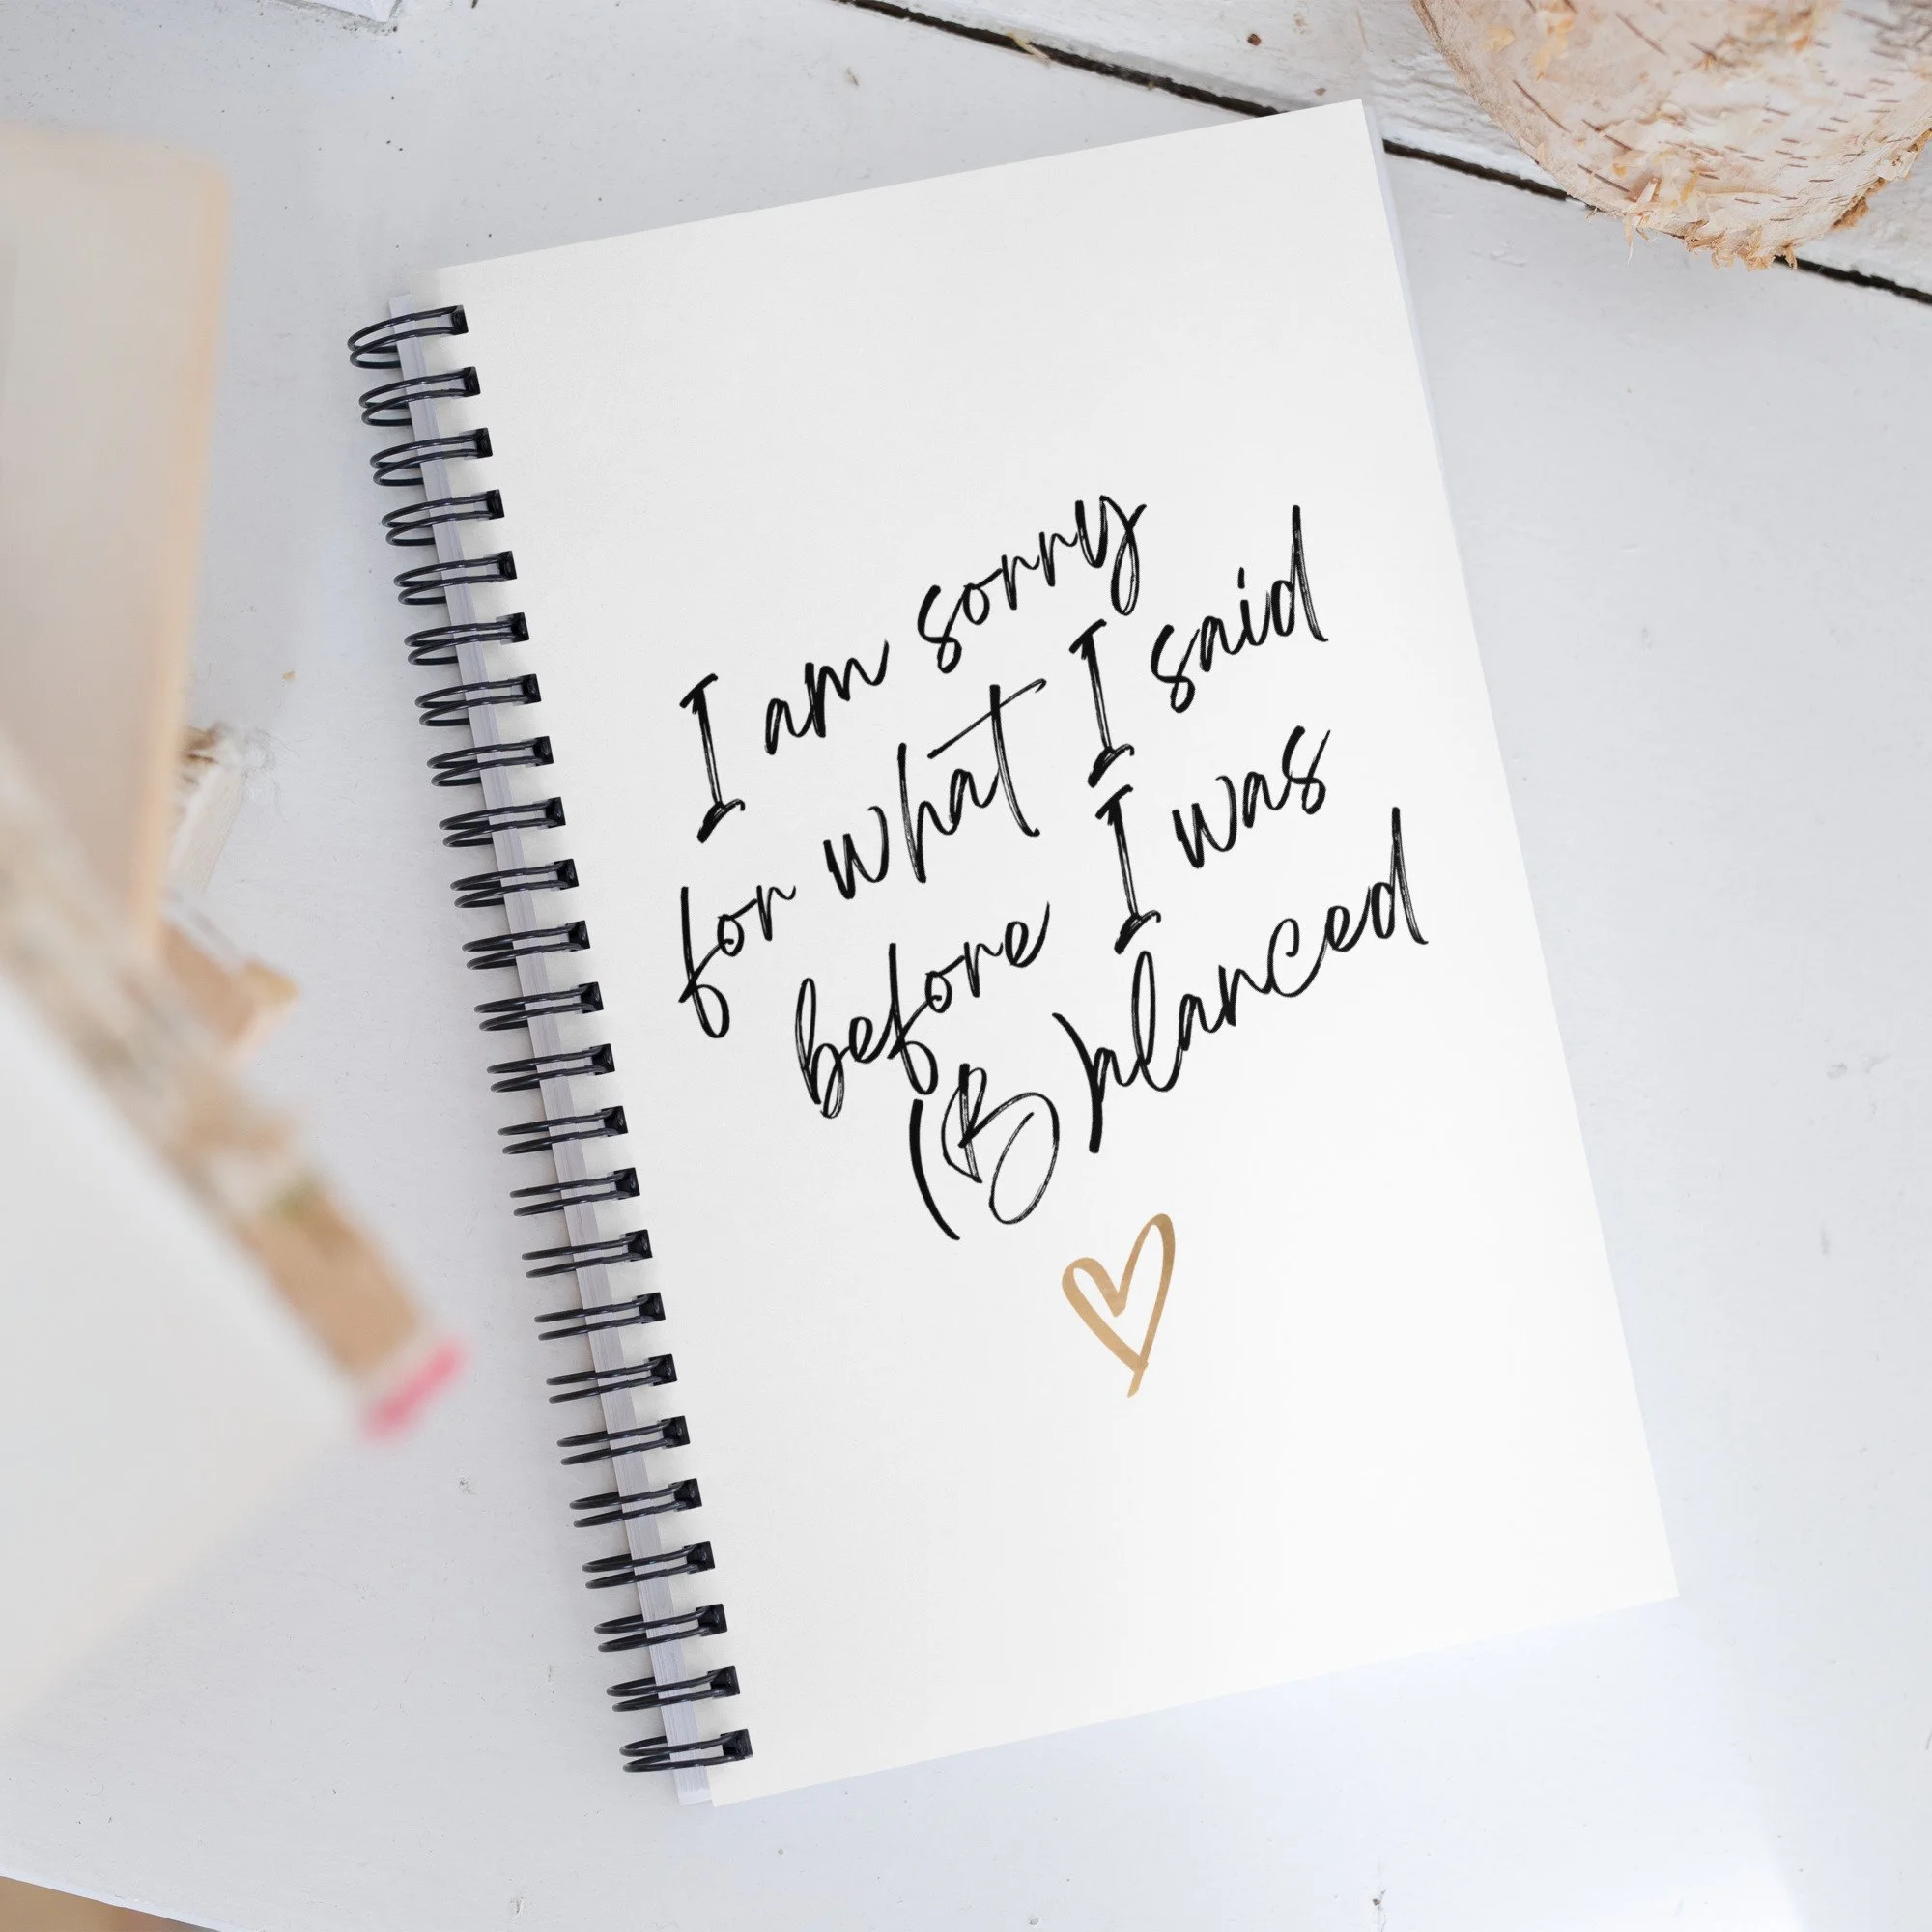 I am sorry
for what I said
before I was
(B)alanced